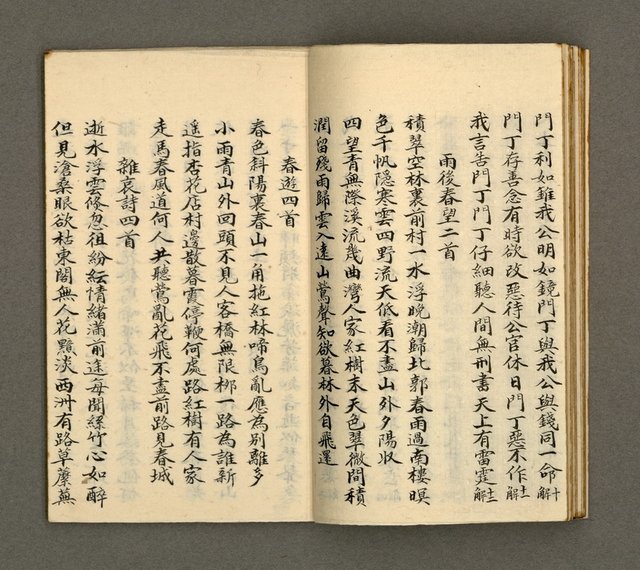 門丁利如錐我公明如鏡門丁與我公與錢同一命十解
門丁存善念有時欲改惡待公官休日門丁惡不作十一解
我言告門丁門丁仔細聽人間無刑書天上有雷霆十二解
雨後春望二首
積翠空林裏前村一水浮晚潮歸北郭春雨過南樓暝
色千帆隱寒雲四野流天低看不盡山外夕陽收
四望青無際溪流幾曲灣人家紅樹末天色翠微間積
潤留殘雨歸雲入遠山鶯聲知欲暮林外自飛還
春遊四首
春色斜陽裏春山一角拖紅林啼鳥亂應為別離多
小雨青山外回頭不見人客橋無限柳一路為誰新
遥指杏花店村邊散暮霞停鞭何處路紅樹有人家
走馬春風道何人共聽鶯亂花飛不盡前路見春城
雜哀詩四首
逝水浮雲倏忽徂紛紜情緒滿前途每聞絲竹心如醉
但見滄桑眼欲枯東閣無人花黯淡西洲有路草蘼蕪